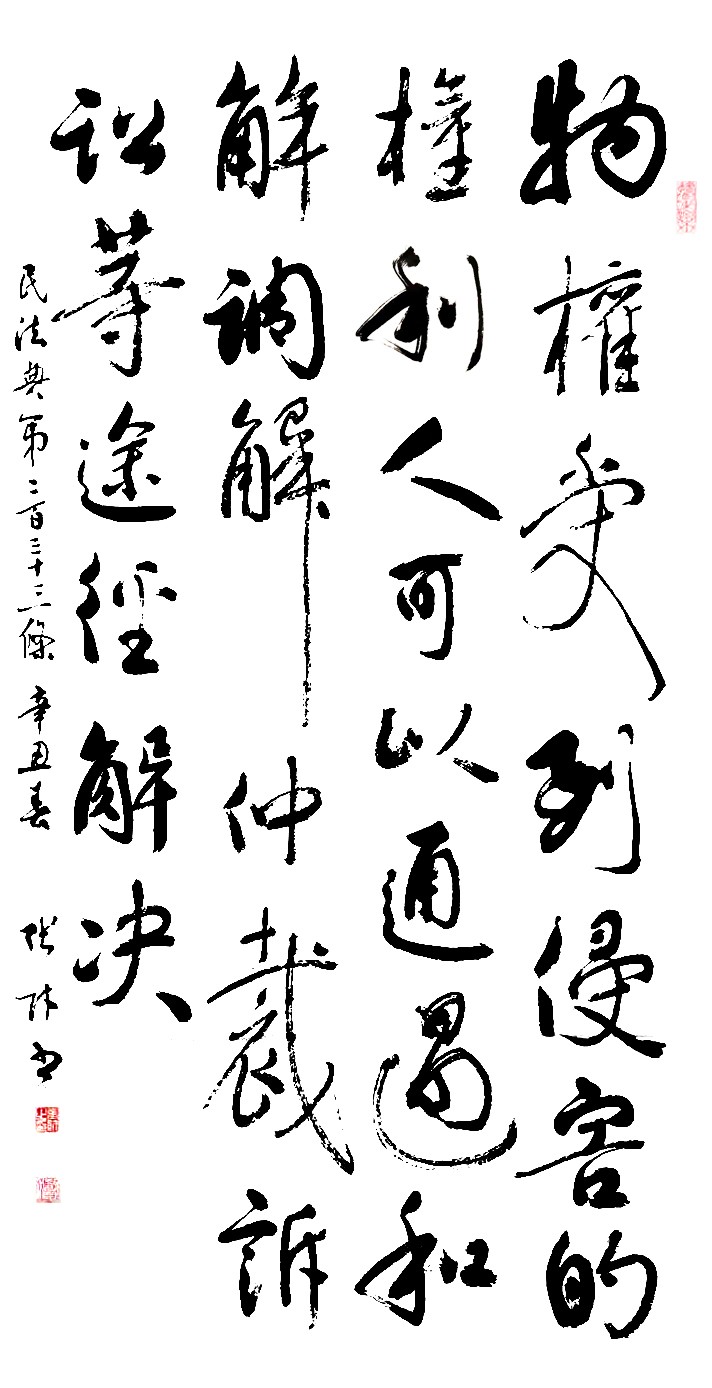 物權受到侵害的
權利人可以通過和
解調解仲裁訴
訟等途徑解决
民法典第二百三十三條 辛丑春